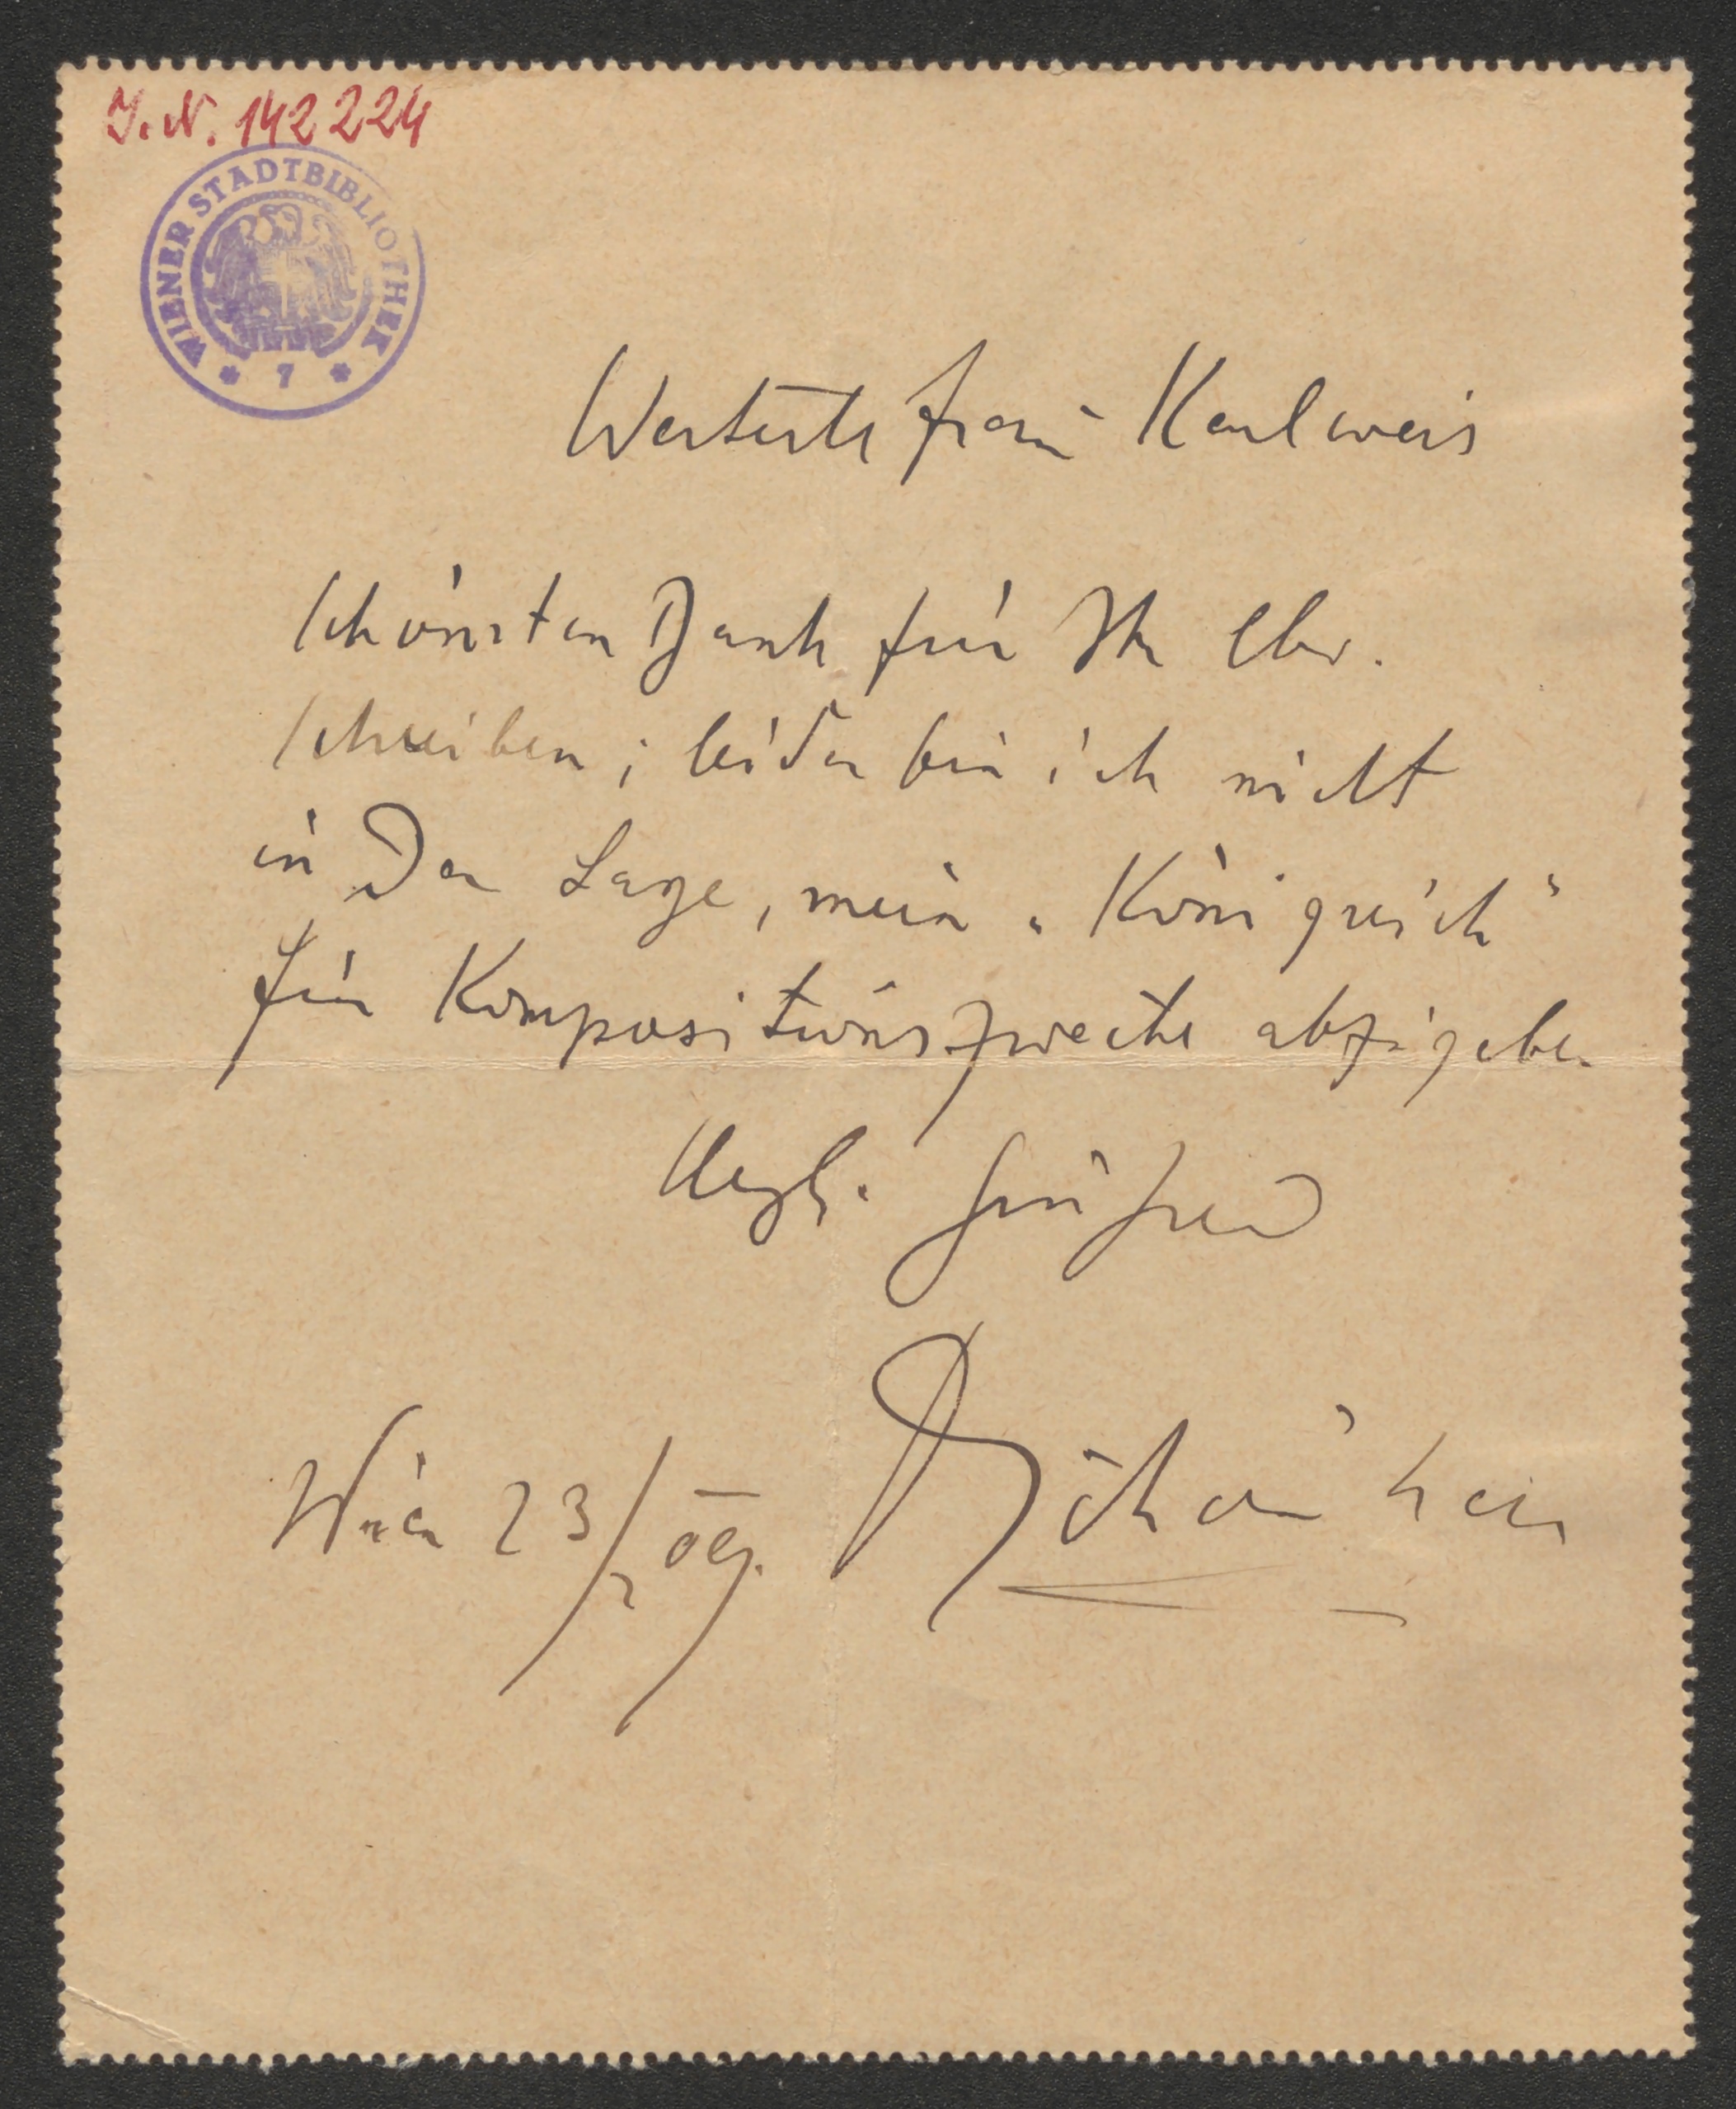 J. N. 142224
WIENER STADTBIBLIOTHEK
* 7 *
Werteste Frau Karlweis
Schönsten Dank für Ihr
Schreiben; leider bin ich nicht
in der Lage, mein „Königreich“
für Kompositionszwecke abzugeben
Wien 23/2 09.